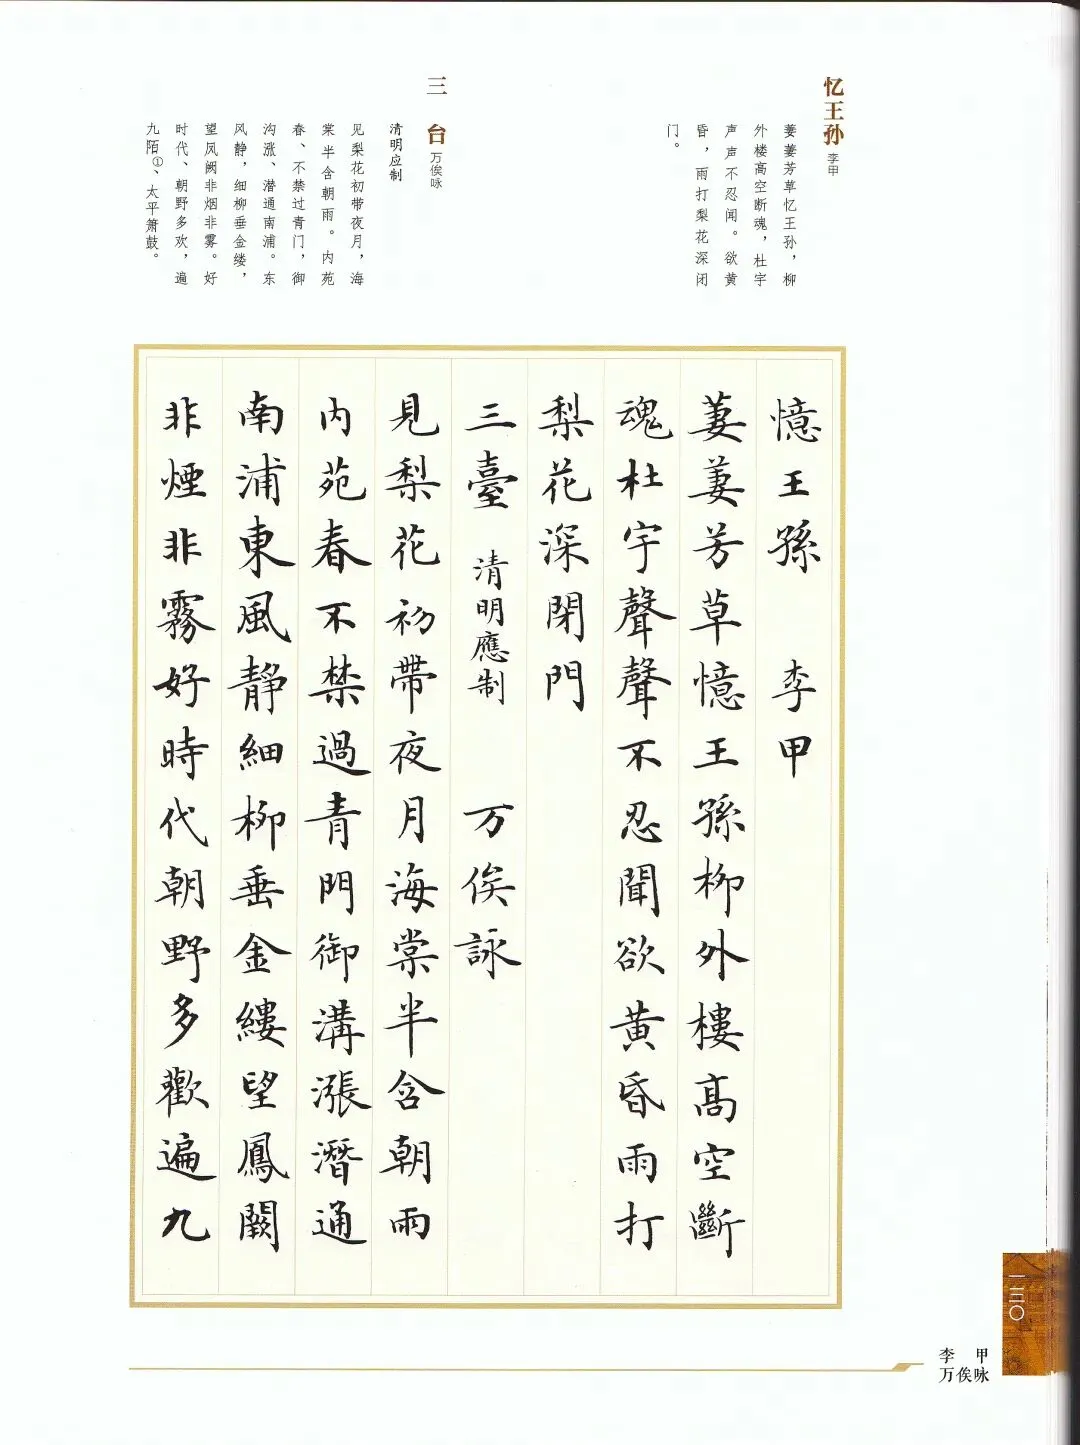 忆王孙 李甲
萋萋芳草忆王孙，柳
外楼高空断魂，杜宇
声声不忍闻。欲黄
昏，雨打梨花深闭
门。
三台 万俟咏
清明应制
见梨花初带夜月，海
棠半含朝雨。内苑
春、不禁过青门，御
沟涨、潜通南浦。东
风静，细柳垂金缕，
望凤阙非烟非雾。好
时代、朝野多欢，遍
九陌①、太平箫鼓。
憶王孫 李甲
萋萋芳草憶王孫柳外樓高空斷
魂杜宇聲聲不忍聞欲黄昏雨打
梨花深閉門
三臺 清明應制 万俟詠
見梨花初帶夜月海棠半含朝雨
内苑春不禁過青門御溝漲潛通
南浦東風靜細柳垂金縷望鳳闕
非煙非霧好時代朝野多歡遍九
一三〇
李甲
万俟咏